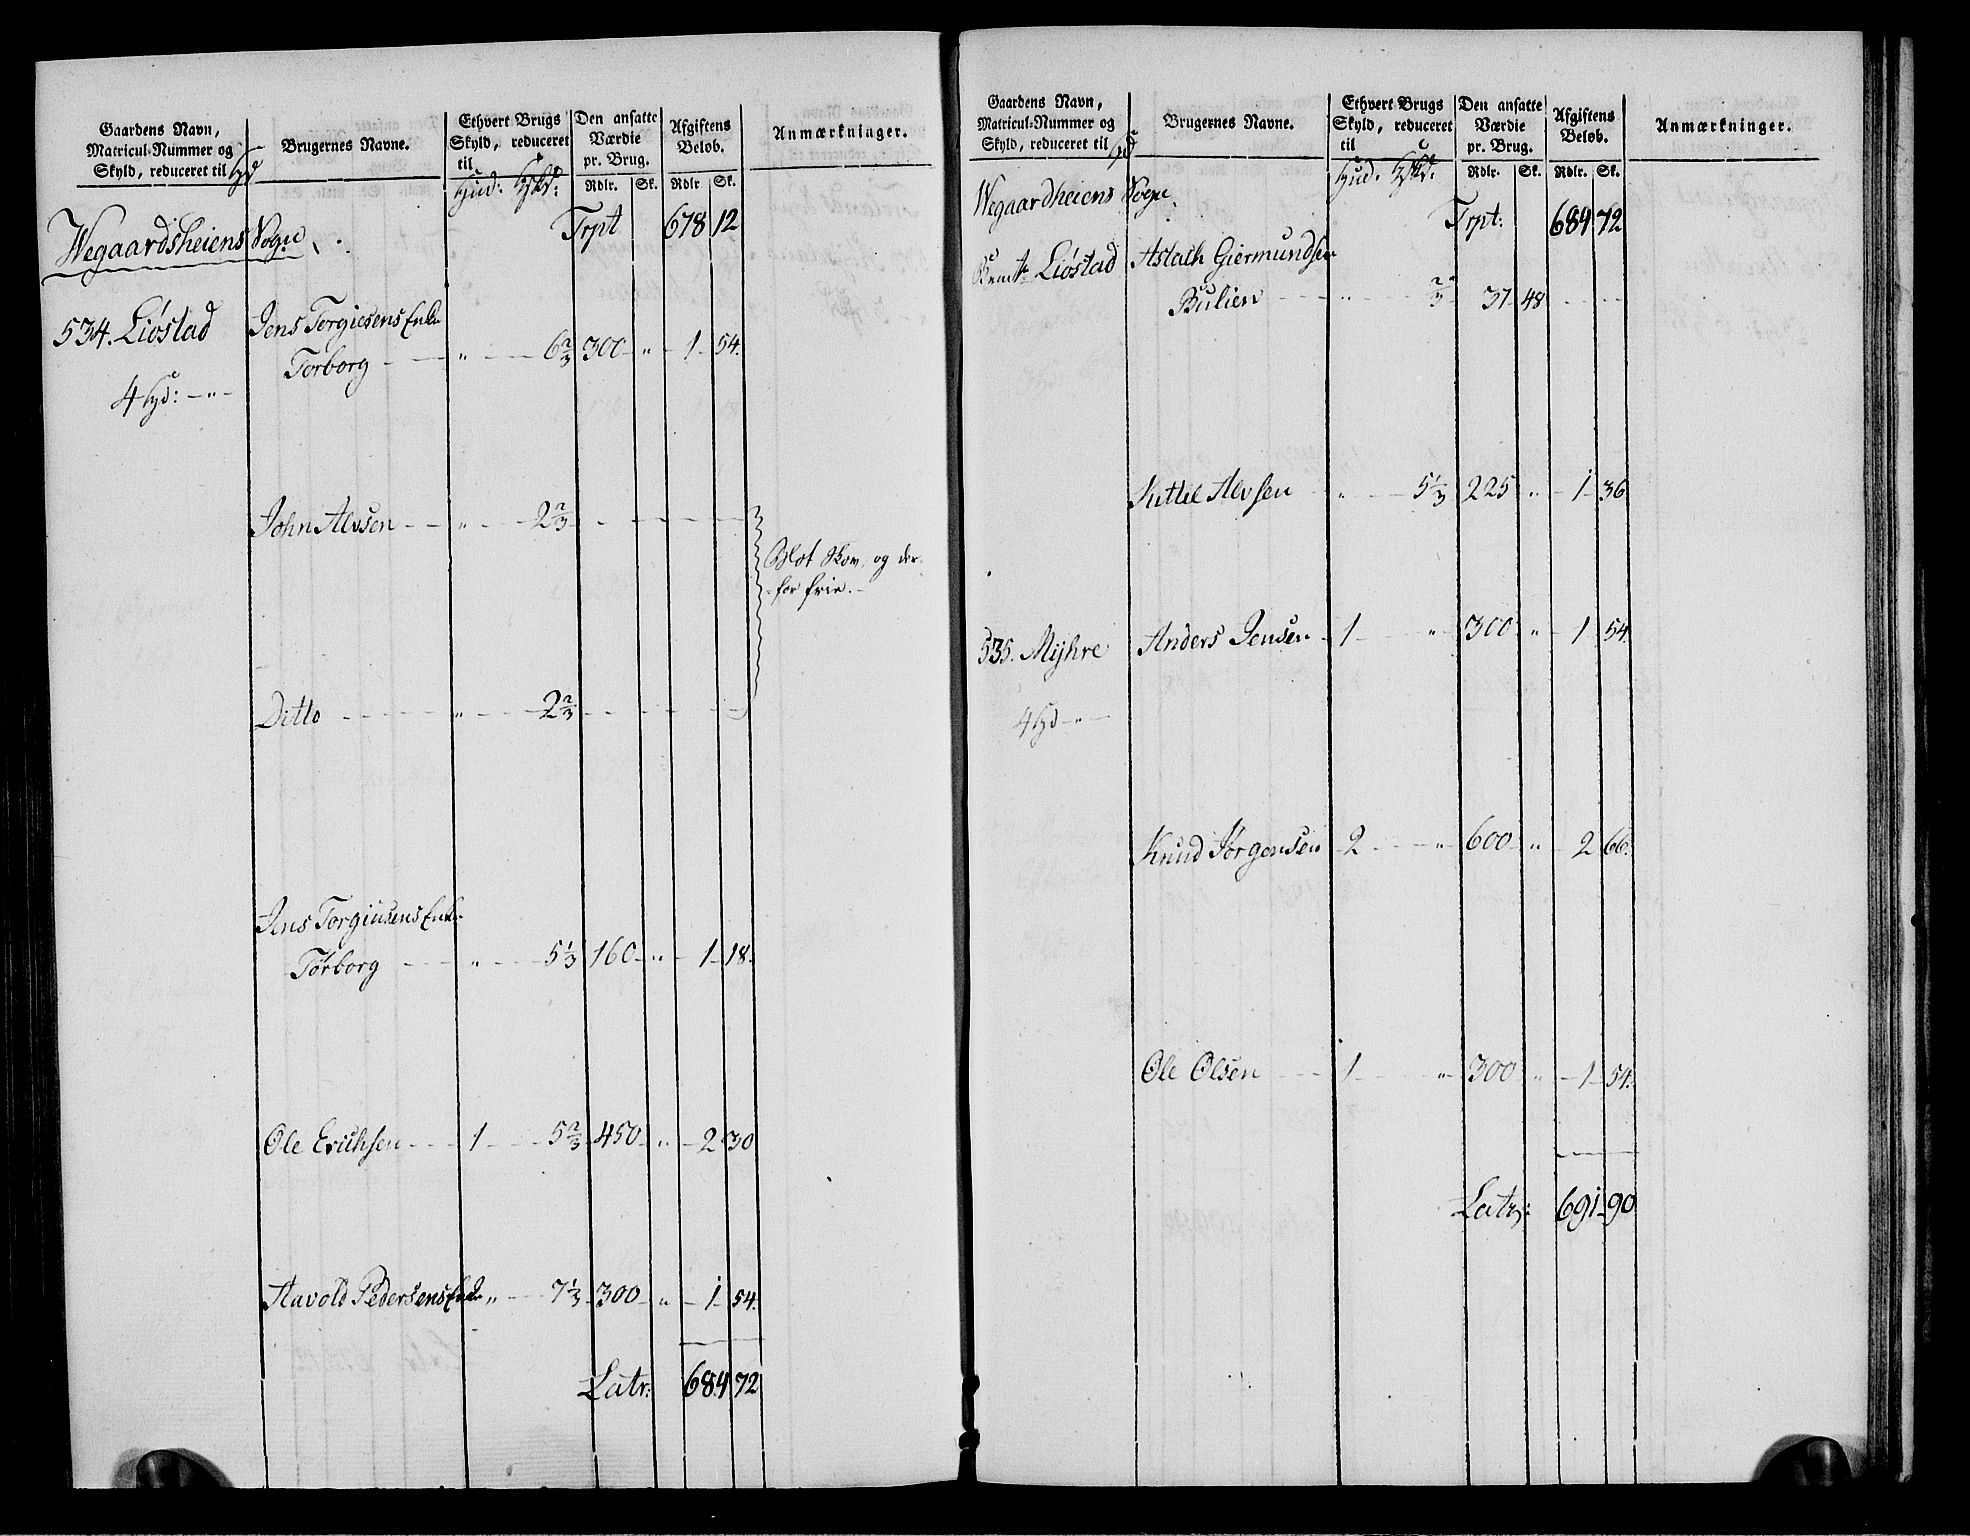 Gaardens Navn, Matricul-Nummer og Skyld, reduceret til Hd | Brugernes Navne. | Ethvert Brugs Skyld, reduceret til Hud: Skd: | Den ansatte Værdie pr. Brug. Rdlr. Sk. | Afgiftens Beløb. Rdlr Sk. | Anmærkninger.
Wegaardsheiens Sogn. Trpt 678 12
534. Liøstad Jens Torgiesens Enke
Torborg - - " - - 6 2/3 300 - " - 1 - 54.
4 Hd: - " -
John Alvsen - - " - - 2 2/3 - - -
Blot Skov, og der-
for frie. -
Ditto - - " - - 2 2/3 - - -
Jens Torgiusens Enke
Torborg - - " - - 5 1/3 160 - " - 1 - 18.
Ole Erichsen - - 1 - - 5 2/3 450 - " - 2 - 30
Havold Pedersens Enke " - - 7 1/3 300 - " - 1 - 54.
Latr: 684 72
Gaardens Navn, Matricul-Nummer og Skyld, reduceret til Hd | Brugernes Navne. | Ethvert Brugs Skyld, reduceret til Hud: Skd: | Den ansatte Værdie pr. Brug. Rdlr. Sk. | Afgiftens Beløb. Rdlr. Sk. | Anmærkninger.
Wegaardheiens Sogn. Trpt: 684 72
Liøstad Aslach Giermundsen
Bulien - - " - - 2/3 - 37 - 48 - - -
Kittel Alvsen - - " - - 5 1/3 225 " - 1 - 36
535. Mijhre Anders Jensen - 1 - - " - 300 - " - 1 - 54.
4 Hd - " -
Knud Jørgensen - 2 - - " - 600 - " - 2 66.
Ole Olsen - - 1 - - " - 300 " - 1 - 54.
Latr: 691 - 90